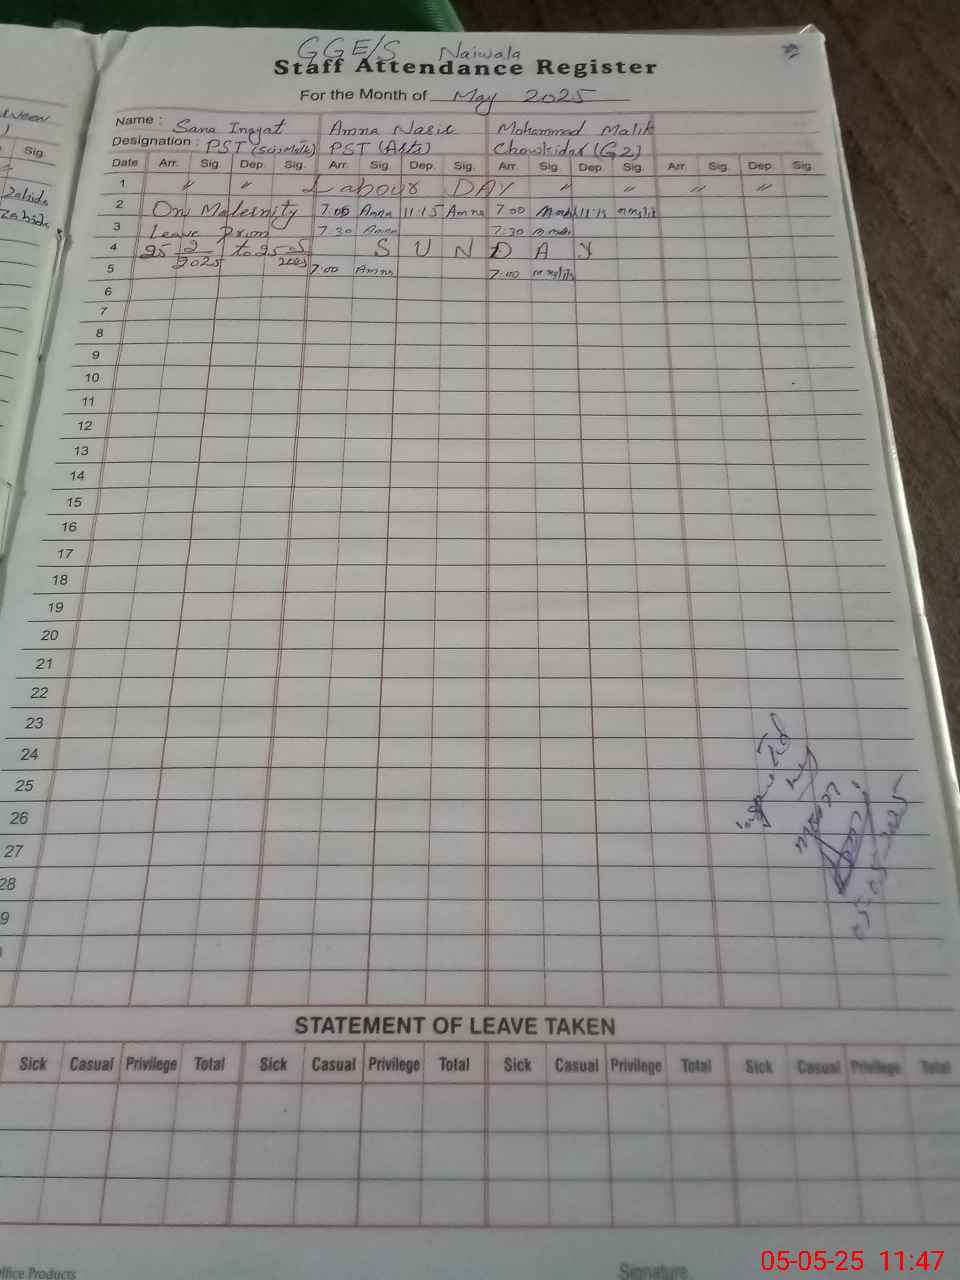 GGE/S Naiwala
Staff Attendance Register
For the Month of May 2025
Name : Sana Inayat Amna Nasir Mohammad Malik
Designation : PST (Sci-Math) PST (Arts) Chowkidar (G2)
Date Arr. Sig. Dep. Sig. Arr. Sig. Dep. Sig. Arr. Sig. Dep. Sig. Arr. Sig. Dep. Sig.
1 〃 〃 Labour DAY 〃 〃 〃 〃
2 On Maternity 7:00 Amna 11:15 Amna 7:00 11:15
3 Leave From 7:30 Amna 7:30
4 25 2/2025 to 25 5/2025 S U N D A Y
5 7:00 Amna 7:00
6
7
8
9
10
11
12
13
14
15
16
17
18
19
20
21
22
23
24
25
26
27
28
9
05-05-2025
STATEMENT OF LEAVE TAKEN
Sick Casual Privilege Total Sick Casual Privilege Total Sick Casual Privilege Total Sick Casual Privilege Total
ffice Products Signature
05-05-25 11:47
Sig.
Zahida
Zahida